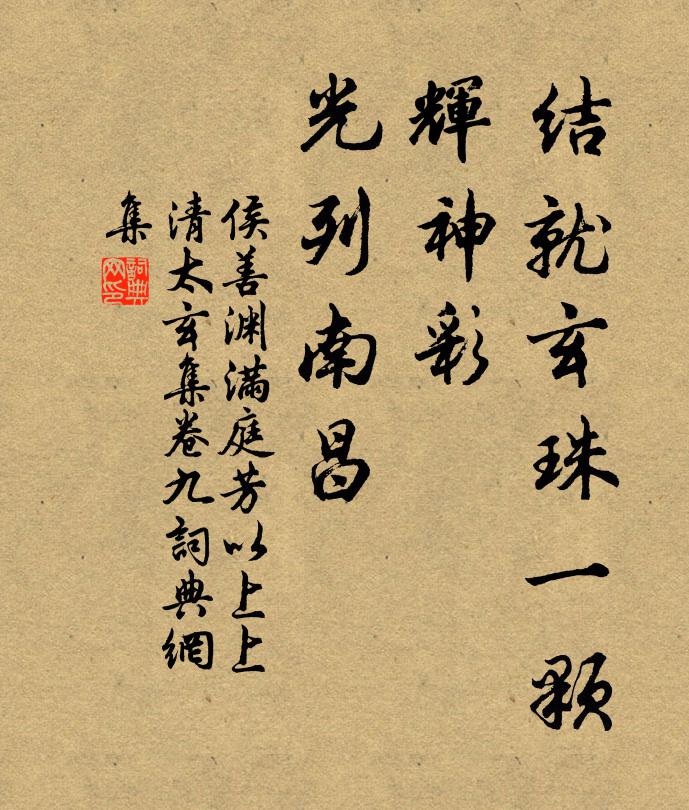 结就玄珠一颗
輝神彩
光列南昌
侯善渊滿庭芳以上上
清太玄集卷九詞典網
集
詞典
网印